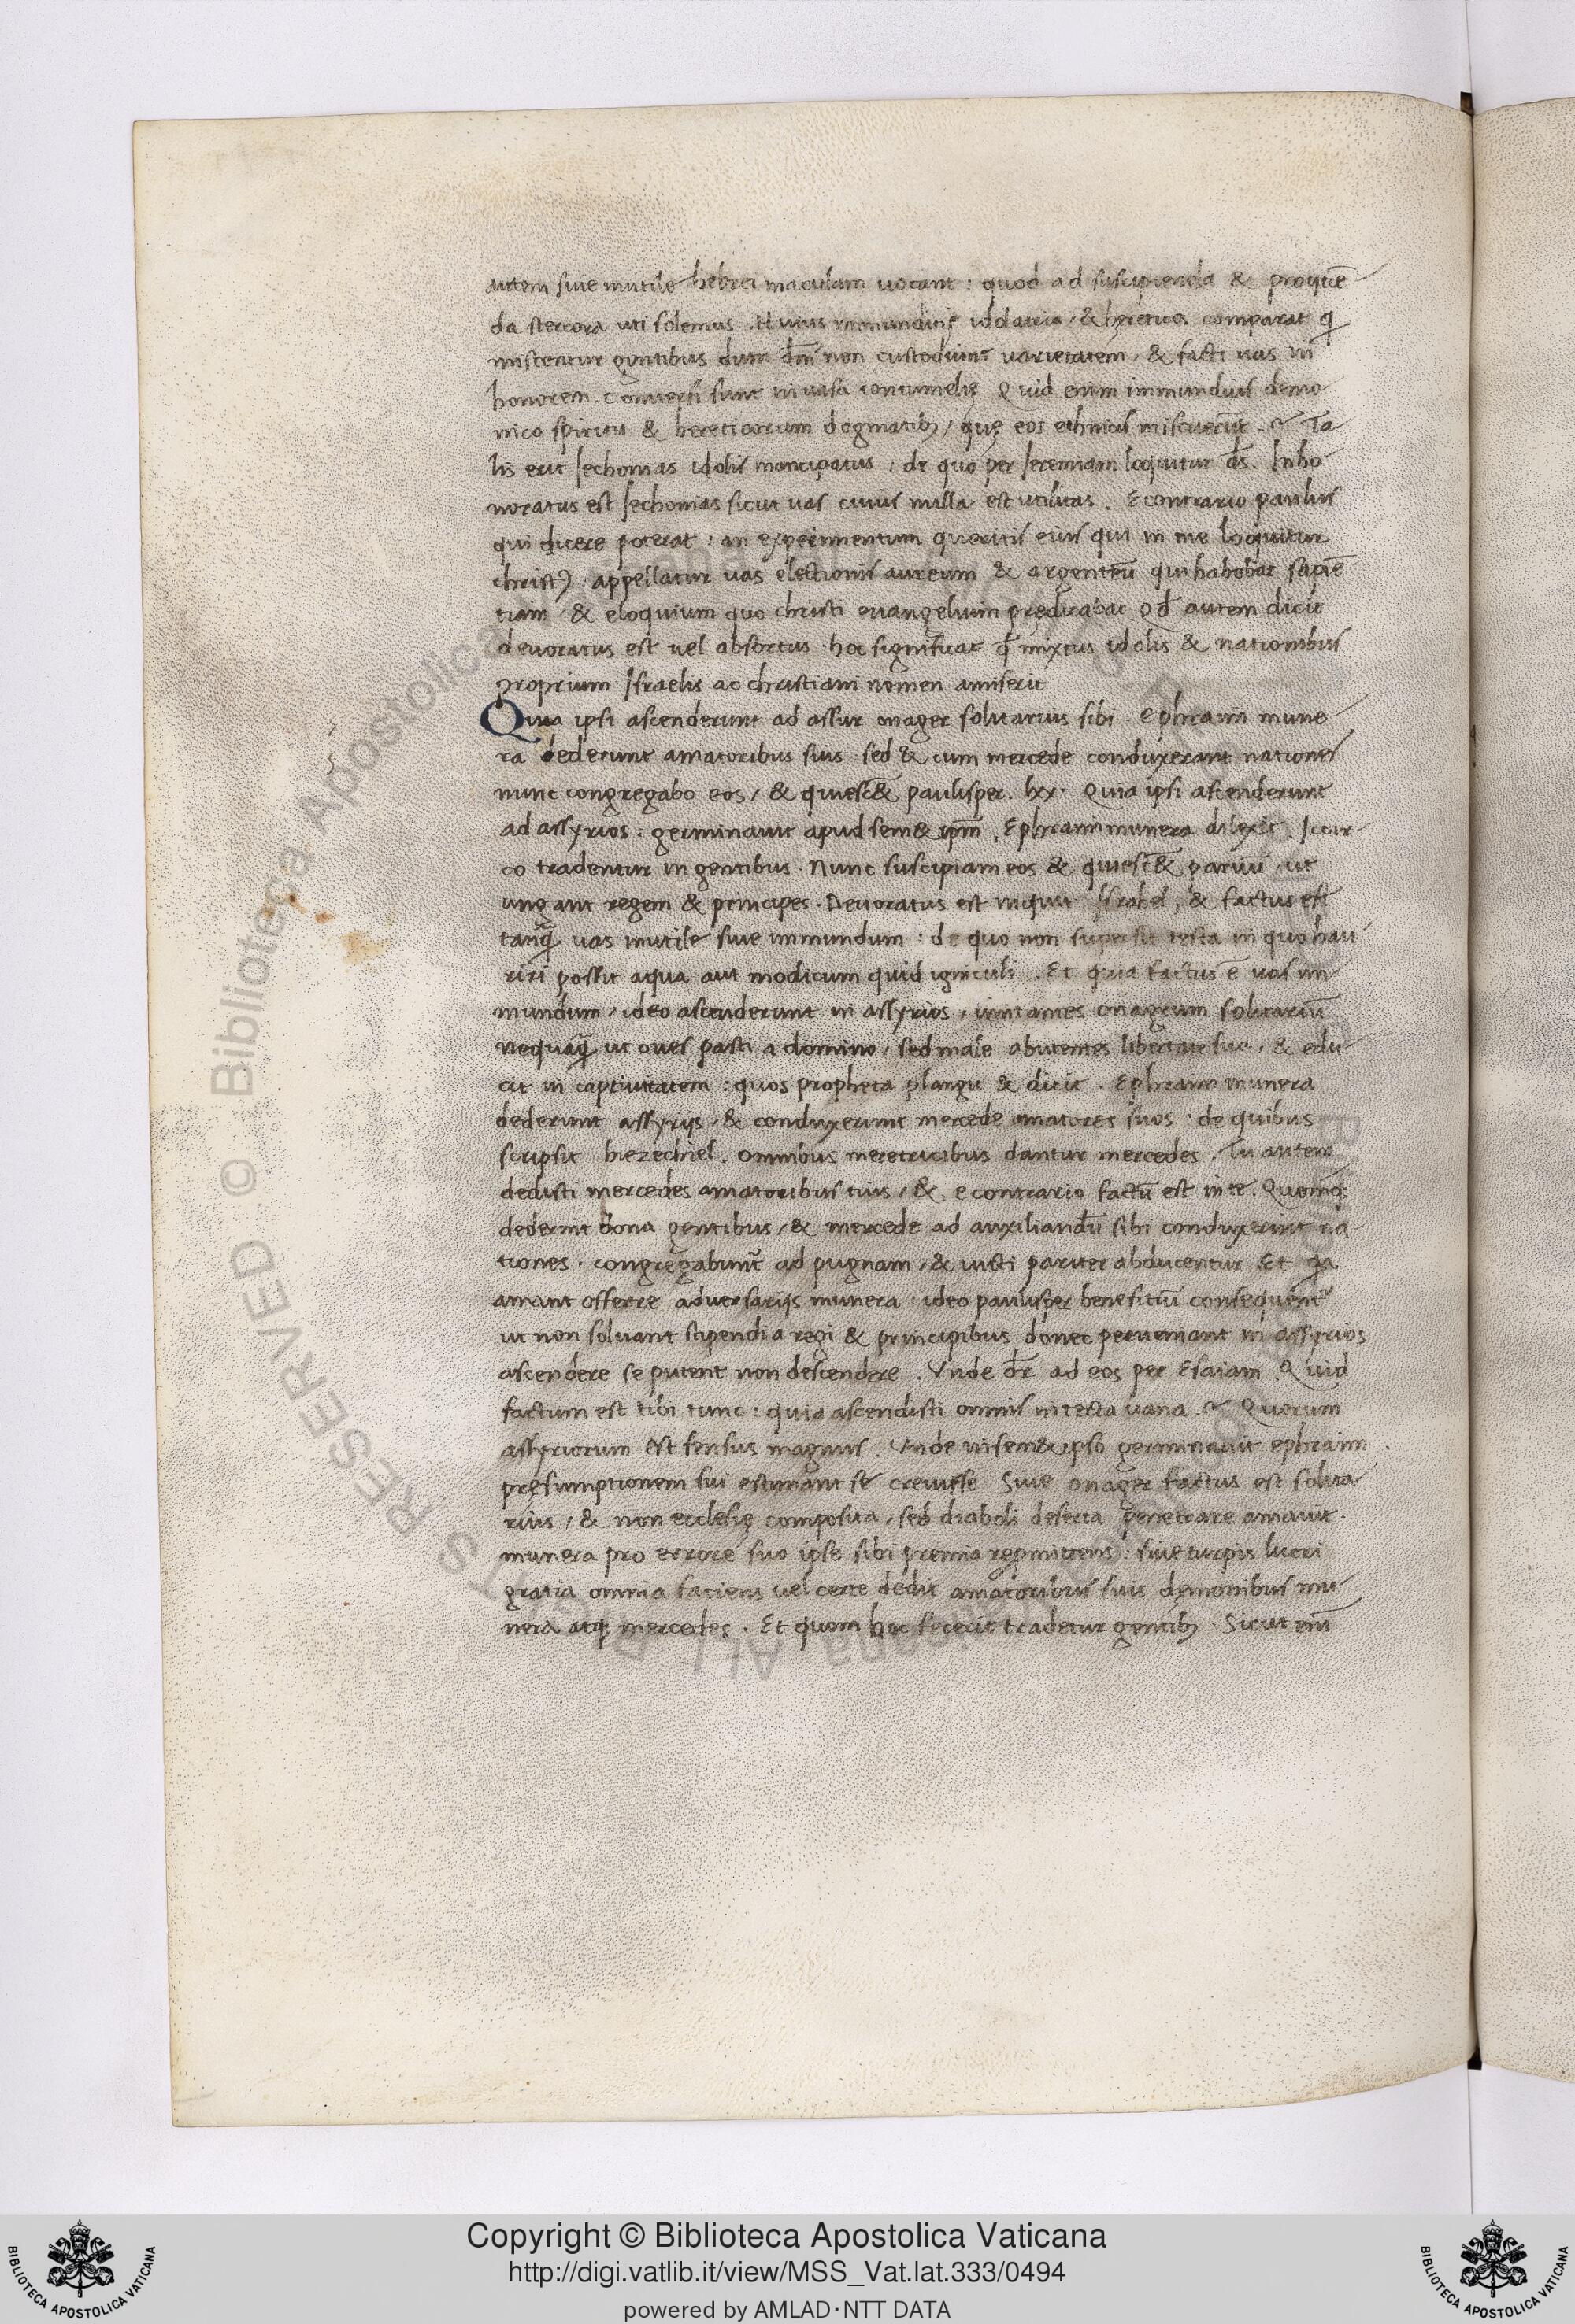 autem siue inutile hebrei maculam uocant : quod ad suscipienda & proijciē
da stercora uti solemus . Huius immunditię idolatria / & hęretica comparat q̇
miscentur gentibus dum dn̄i non custodiunt uarietatem / & facti uas in
honorem conuersi sunt in uasa contumelię Quid enim immundius demo
nico spiritu & hereticorum dogmatibȝ / quę eos ethnicis miscuerūt . Ta
lis erit Iechonias idolis mancipatus : de quo per Ieremiam loquitur dn̄s . Inho
noratus est Iechonias sicut uas cuius nulla est utilitas . Econtrario paulus
qui dicere poterat : an experimentum queritis eius qui in me loquitur
christꝰ . appellatur uas electionis aureum & argenteū qui habebat sapiē
tiam / & eloquium quo christi euangelium prędicabat qđ autem dicit
deuoratus est uel absortus . hoc significat ꝙ mixtus idolis & nationibus
proprium Israelis ac christiani nomen amiserit
Quia ipsi ascenderunt ad assur onager solitarius sibi . Ephraim mune
ra dederunt amatoribus suis sed & cum mercede conduxerant nationes
nunc congregabo eos / & quiesc& paulisper . lxx . Quia ipsi ascenderunt
ad assyrios . germinauit apud sem& ipm̄ . Ephraim munera dilexit . Iccir
co tradentur in gentibus . Nunc suscipiam eos & quiesc& paruū ut
ungant regem & principes . Deuoratus est inquit Israhel , & factus est
tanq̃ uas inutile siue immundum : de quo non supersit testa in quo hau
riri possit aqua aut modicum quid igniculi . Et quia factus ē uas im
mundum / ideo ascenderunt in assyrios / imitantes onagrum solitariū
nequaq̃ ut oues pasti a domino / sed male abutentes libertate sua / & edu
cit in captiuitatem : quos propheta plangit & dicit . Ephraim munera
dederunt assyrijs / & conduxerunt mercede amatores suos . de quibus
scripsit hiezechiel . omnibus meretricibus dantur mercedes . Tu autem
dedisti mercedes amatoribus tuis / & e contrario factū est in te .
dederint dona gentibus / & mercede ad auxiliandū sibi conduxerunt na
tiones . congregabunt̃ ad pugnam / & uicti pariter abducentur Et q̇a
amant offerre aduersarijs munera . ideo paulisper benefitiū consequent̃
ut non soluant stipendia regi & principibus donec perueniant in assyrios
ascendere se putent non descendere . Vnde dr̄ ad eos per Esaiam Quid
factum est tibi tunc : quia ascendisti omnis in tecta uana . Quorum
assyriorum est sensus magnus . Vnde in sem&ipso germinauit ephraim .
pręsumptionem sui estimant se creuisse . Siue onager factus est solita
rius / & non ecclesię composita / sed diaboli deserta penetrare amauit .
munera pro errore suo ipse sibi premia repmittens : siue turpis lucri
gratia omnia faciens uel certe dedit amatoribus suis dęmonibus mu
nera atq; mercedes . Et quom hoc fecerit tradetur gentibȝ . Sicut enī
Copyright © Biblioteca Apostolica Vaticana
http://digi.vatlib.it/view/MSS_Vat.lat.333/0494
powered by AMLAD·NTT DATA